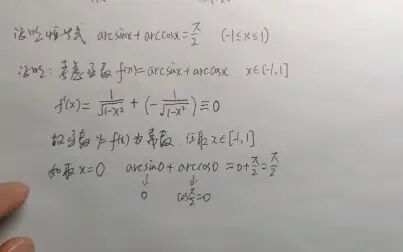 证明恒等式 arcsinx+arccosx=π/2 (-1≤x≤1)
证明: 考虑函数f(x)=arcsinx+arccosx x∈[-1,1]
f'(x)=1/√(1-x²)+(-1/√(1-x²))≡0
故函数y=f(x)为常数. 任取x∈[-1,1]
如取x=0 arcsin0+arccos0=0+π/2=π/2
↓ ↓
0 cosπ/2=0